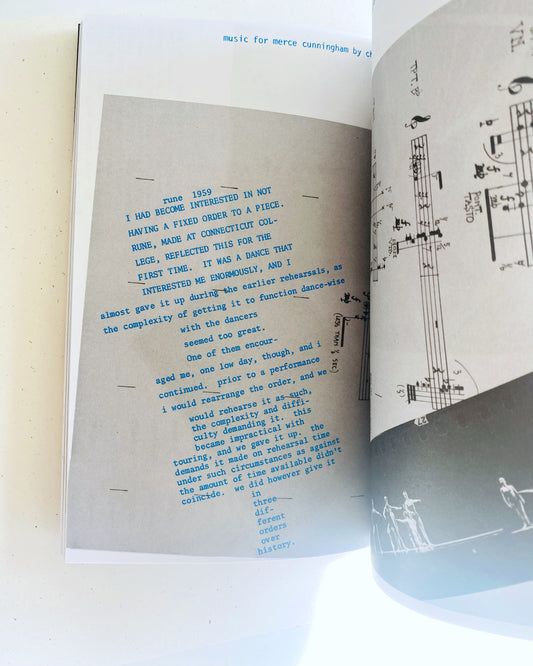 music for merce cunningham by
rune 1959
I HAD BECOME INTERESTED IN NOT
HAVING A FIXED ORDER TO A PIECE.
RUNE, MADE AT CONNECTICUT COL-
LEGE, REFLECTED THIS FOR THE
FIRST TIME. IT WAS A DANCE THAT
INTERESTED ME ENORMOUSLY, AND I
almost gave it up during the earlier rehearsals, as
the complexity of getting it to function dance-wise
with the dancers
seemed too great.
One of them encour-
aged me, one low day, though, and i
continued. prior to a performance
i would rearrange the order, and we
would rehearse it as such,
the complexity and diffi-
culty demanding it. this
became impractical with
touring, and we gave it up. the
demands it made on rehearsal time
under such circumstances as against
the amount of time available didn't
coincide. we did however give it
in
three
dif-
ferent
orders
over
history.
(LESS THAN ½ SEC)
VII.
TPT. 3
PONT.
TASTO
(3)